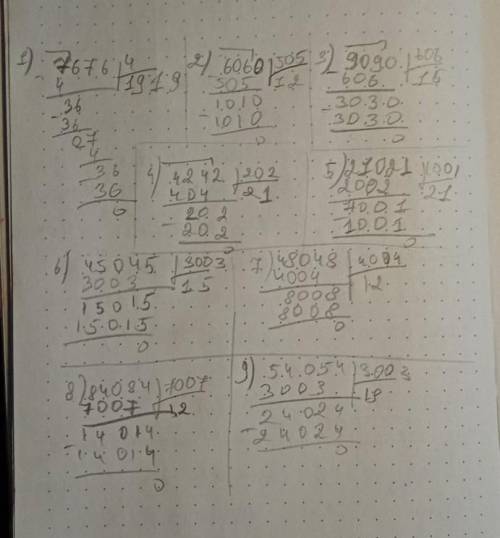 1) 7676 4
4 1919
36
36
07
4
36
36
0
2) 6060 505
505 12
1010
1010
0
3) 9090 606
606 15
3030
3030
0
4) 4242 202
404 21
202
202
0
5) 21021 1001
2002 21
1001
1001
0
6) 45045 3003
3003 15
15015
15015
0
7) 48048 4004
4004 12
8008
8008
0
8) 84084 7007
7007 12
14014
14014
0
9) 54054 3003
3003 18
24024
24024
0